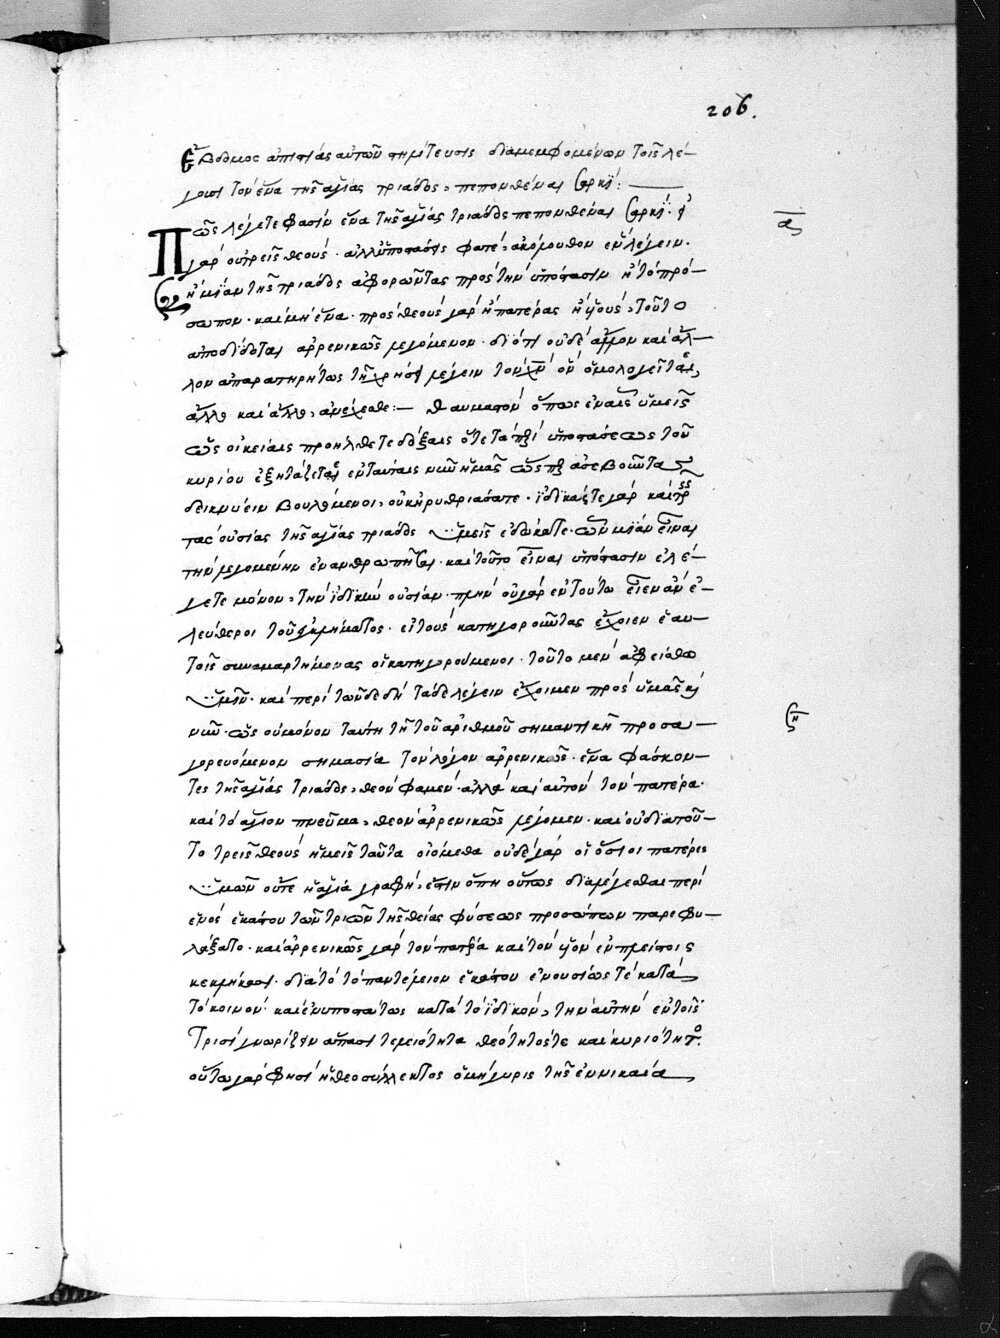 206.
Ἕβδομος ἀπιστίας αὐτῶν τημέτευσις διαμεμφομένων τοῖς λέ-
γουσι τὸν ἕνα τῆς ἁγίας τριάδος, πεπονθέναι σαρκί:
Πῶς λέγετε φασὶν ἕνα τῆς ἁγίας τριάδος πεπονθέναι σαρκί· εἰ
γὰρ οὐ τρεῖς θεούς· ἀλλ' ὑποστάσεις φατέ, ἀκόλουθον ἦν λέγειν·
ἢ μίαν τῆς τριάδος ἀφορῶντας πρὸς τὴν ὑπόστασιν ἢ τὸ πρό-
σωπον· καὶ μὴ ἕνα· πρὸς θεοὺς γὰρ ἢ πατέρας ἢ υἱούς, τοῦτο
ἀποδίδοται ἀρρενικῶς λεγόμενον· διότι οὐδὲ ἄλλον καὶ ἄλ-
λον ἀπαρατηρήτως τῇ χρήσει λέγειν τὸν χ̅ν̅ ὃν ὁμολογεῖται,
ἄλλο καὶ ἄλλο, ἀνέχεσθε:— θαυμαστὸν ὅπως ἐναῖς ὑμεῖς
ὡς οἰκείαις προήλθετε δόξαις ὅτε τὰ περὶ ὑποστάσεως τοῦ
κυρίου ἐξητάζεται, ἐν ταύταις νῦν ἡμᾶς ὥσπερ ἀσεβοῦντας
δεικνύειν βουλόμενοι, οὐκ ἠρυθριάσατε· ἰδικάς τε γὰρ καὶ τρεῖς
τὰς οὐσίας τῆς ἁγίας τριάδος ὑμεῖς ἐδώκατε· ὧν μίαν εἶναι
τὴν λεγομένην ἐνανθρωπῆσαι· καὶ τοῦτο εἶναι ὑπόστασιν ἐλέ-
γετε μόνον, τὴν ἰδικὴν οὐσίαν· πλὴν οὐ γὰρ ἐν τούτῳ εἶεν ἂν ἐ-
λεύθεροι τοῦ ἐγκλήματος· εἰ τοὺς κατηγοροῦντας ἔχοιεν ἑαυ-
τοῖς συναμαρτήμονας οἱ κατηγορούμενοι· τοῦτο μὲν ἀφείσθω
ὑμῖν· καὶ περὶ τῶνδε δὴ τάδε λέγειν ἔχοιμεν πρὸς ὑμᾶς καὶ
νῦν· ὡς οὐ μόνον ταύτῃ τῇ τοῦ ἀριθμοῦ σημαντικῇ προσα-
γορευόμενον σημασίᾳ τὸν λόγον ἀρρενικῶς· ἕνα φάσκον-
τες τῆς ἁγίας τριάδος, θεὸν φαμέν· ἀλλὰ καὶ αὐτὸν τὸν πατέρα·
καὶ τὸ ἅγιον πνεῦμα, θεὸν ἀρρενικῶς λέγομεν· καὶ οὐ διὰ τοῦ-
το τρεῖς θεοὺς ἡμεῖς ταῦτα οἰόμεθα οὐδὲ γὰρ οἱ ὅσιοι πατέρες
ἡμῶν οὔτε ἡ ἁγία γραφή, ἔστιν ὅπη οὕτως διαλέγεσθαι περὶ
ἑνὸς ἑκάστου τῶν τριῶν τῆς θείας φύσεως προσώπων παρεφυ-
λάξατο· καὶ ἀρρενικῶς γὰρ τὸν πατέρα καὶ τὸν υἱὸν ἐν πλείστοις
κεκλήκασι· διὰ τὸ τὸ παντέλειον ἑκάστου ἐνουσίως τε κατὰ
τὸ κοινόν· καὶ ἐνυποστάτως κατὰ τὸ ἰδικόν, τὴν αὐτὴν ἐν τοῖς
τρισὶ γνωρίζειν ἅπασι τελειότητα θεότητός τε καὶ κυριότητος.
οὕτω γὰρ φησὶ ἡ θεοσύλλεκτος ὁμήγυρις τῆς ἐν νικαίᾳ